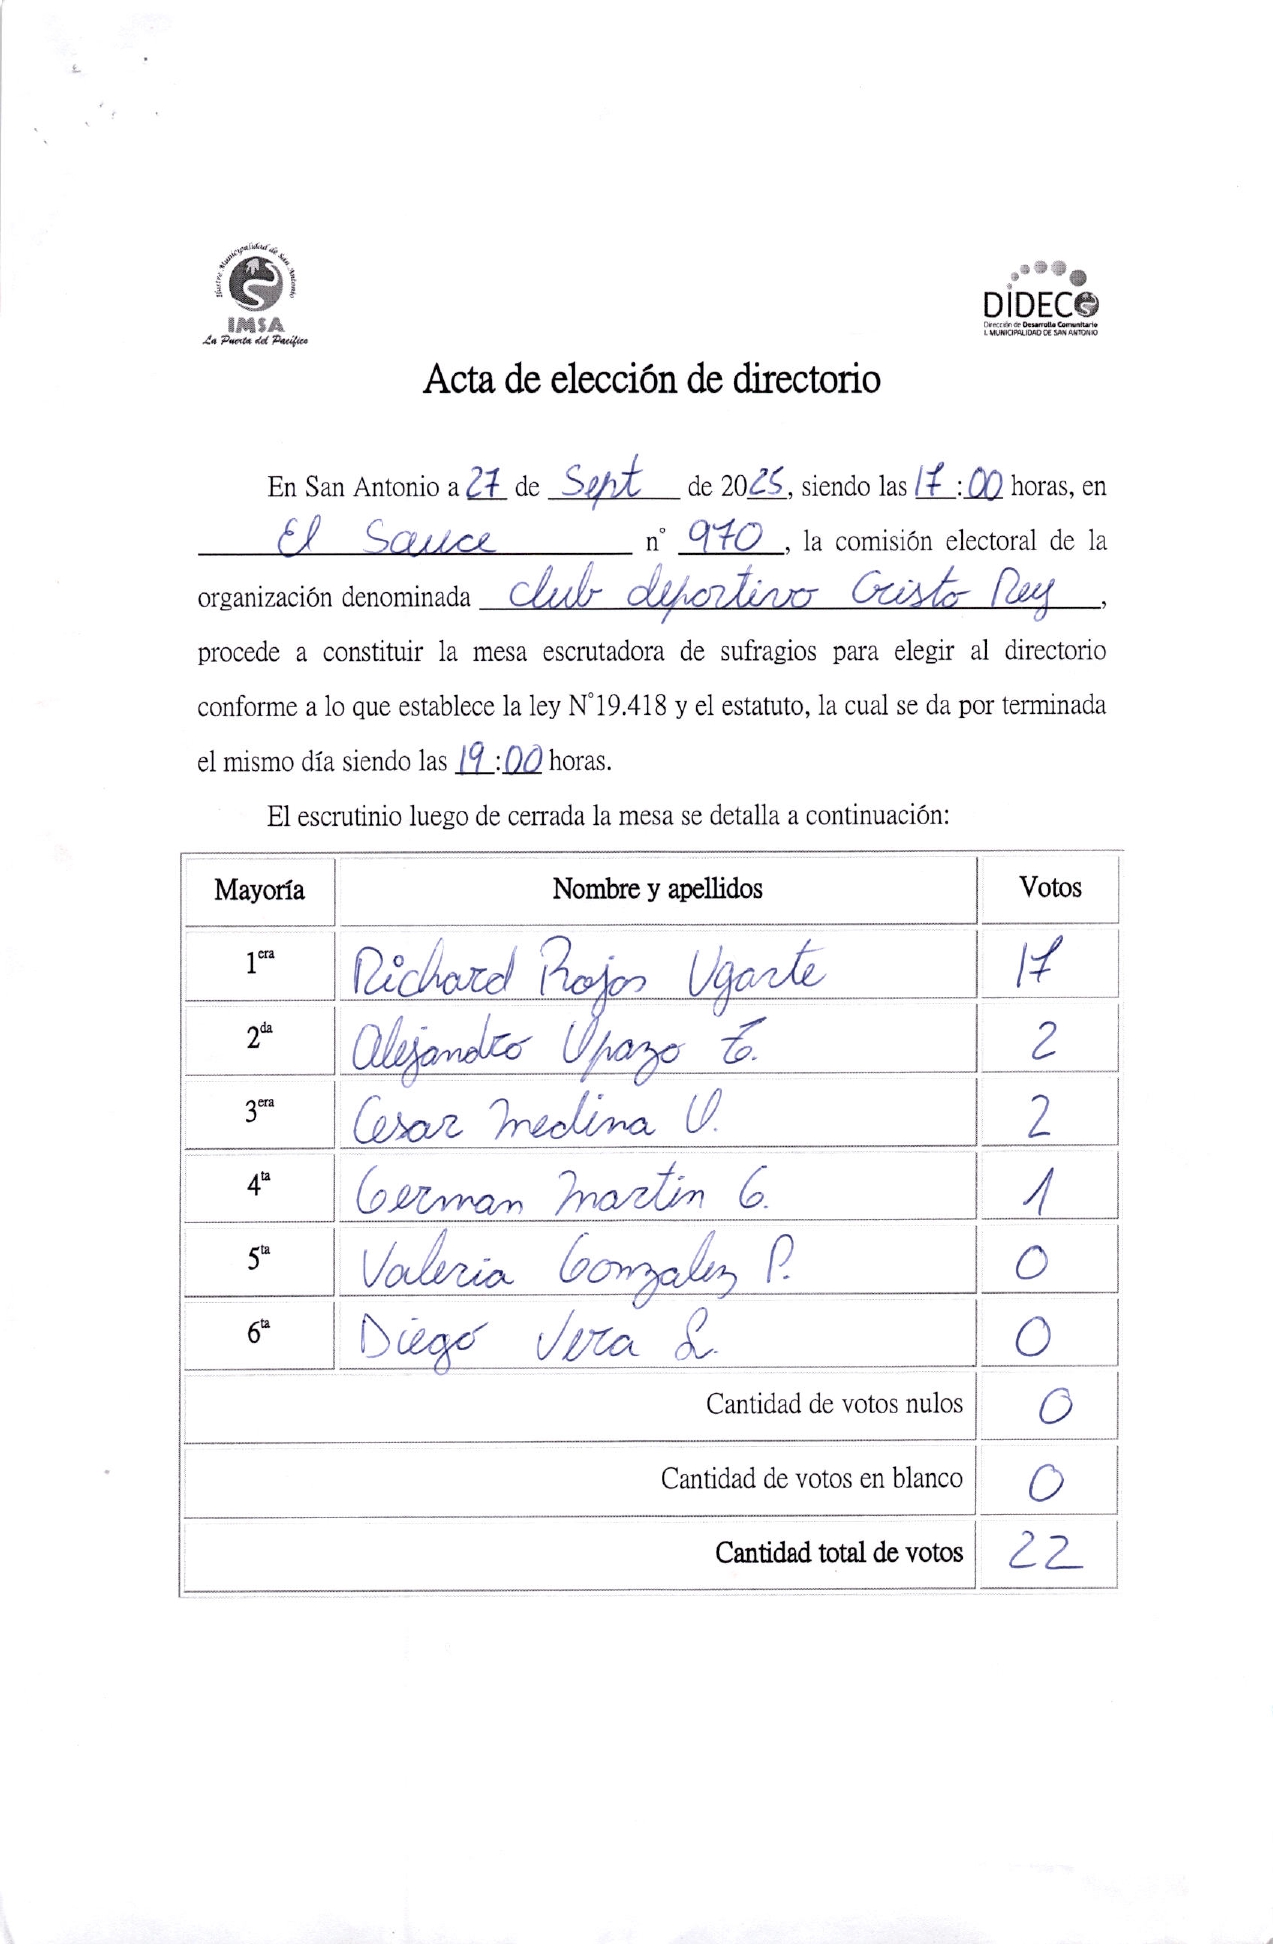 Ilustre Municipalidad de San Antonio
IMSA
La Puerta del Pacífico
DIDECO
Dirección de Desarrollo Comunitario
I. MUNICIPALIDAD DE SAN ANTONIO
Acta de elección de directorio
En San Antonio a 27 de Sept de 2025, siendo las 17:00 horas, en
El Sauce n° 970, la comisión electoral de la
organización denominada Club deportivo Cristo Rey,
procede a constituir la mesa escrutadora de sufragios para elegir al directorio
conforme a lo que establece la ley N°19.418 y el estatuto, la cual se da por terminada
el mismo día siendo las 19:00 horas.
El escrutinio luego de cerrada la mesa se detalla a continuación:
Mayoría Nombre y apellidos Votos
1era Richard Rojas Ugarte 17
2da Alejandro Opazo T. 2
3era Cesar Medina V. 2
4ta German Martin G. 1
5ta Valeria Gonzalez P. 0
6ta Diego Vera L. 0
Cantidad de votos nulos 0
Cantidad de votos en blanco 0
Cantidad total de votos 22